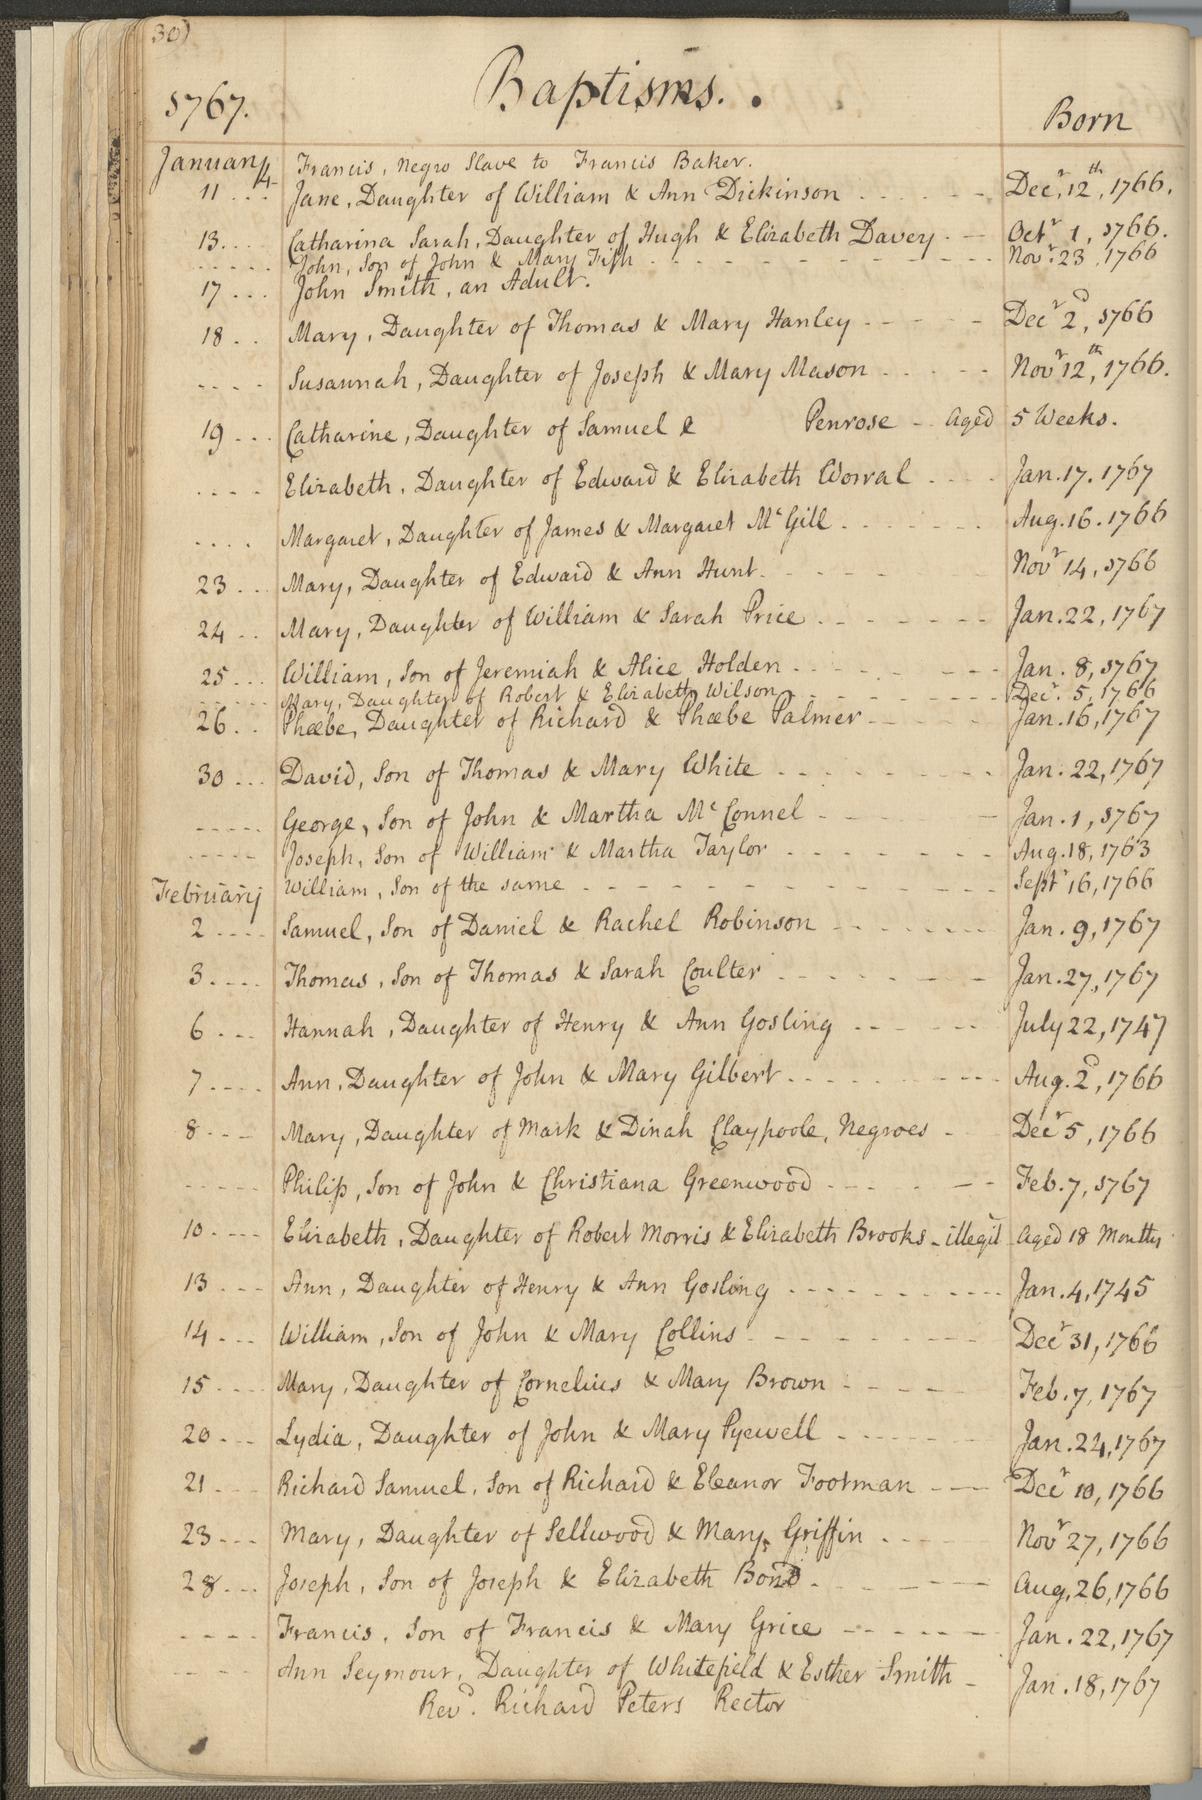 30)
1767. Baptisms. Born
January 4 Francis, Negro Slave to Francis Baker.
11 ... Jane, Daughter of William & Ann Dickinson . . . . . . Decr. 12th, 1766.
13.... Catharina Sarah, Daughter of Hugh & Elizabeth Davey . -- Octr 1, 1766.
..... John, Son of John & Mary Fish . . . . . . . . . Novr. 23, 1766
17 ... John Smith, an Adult.
18 .. Mary, Daughter of Thomas & Mary Hanley - - - - - Decr 2d, 1766
---- Susannah, Daughter of Joseph & Mary Mason . . . . . Novr 12th, 1766.
19 ... Catharine, Daughter of Samuel & Penrose -- Aged 5 Weeks.
.... Elizabeth, Daughter of Edward & Elizabeth Worral . . . . Jan. 17. 1767
.... Margaret, Daughter of James & Margaret McGill . . . . . . Aug. 16. 1766
23 ... Mary, Daughter of Edward & Ann Hunt. - - - - Novr 14, 1766
24 .. Mary, Daughter of William & Sarah Price . - - - - - - Jan. 22, 1767
25 ... William, Son of Jeremiah & Alice Holden - - - - - - - Jan. 8, 1767
..... Mary, Daughter of Robert & Elizabeth Wilson - - - - - - Decr. 5, 1766
26 .. Phœbe, Daughter of Richard & Phœbe Palmer - - - - - Jan. 16, 1767
30 ... David, Son of Thomas & Mary White . . . . . . . . . Jan. 22, 1767
----- George, Son of John & Martha McConnel - - - - - Jan. 1, 1767
----- Joseph, Son of William & Martha Taylor - - - - - - - Aug. 18, 1763
February William, Son of the same - - - - - - - - - - - Septr 16, 1766
2 .... Samuel, Son of Daniel & Rachel Robinson - - - - - - - Jan. 9, 1767
3 .... Thomas, Son of Thomas & Sarah Coulter - - - - - - - Jan. 27, 1767
6 ... Hannah, Daughter of Henry & Ann Gosling - - - - - - July 22, 1747
7 .... Ann, Daughter of John & Mary Gilbert . . . . . . - - - Aug. 2d, 1766
8 --- Mary, Daughter of Mark & Dinah Claypoole, Negroes - Decr 5, 1766
----- Philip, Son of John & Christiana Greenwood - - - - - - Feb. 7, 1767
10 ---- Elizabeth, Daughter of Robert Morris & Elizabeth Brooks - illegit Aged 18 Months
13 --- Ann, Daughter of Henry & Ann Gosling - - - - - - - - - Jan. 4, 1745
14 --- William, Son of John & Mary Collins - - - - - - - - Decr 31, 1766
15 ---- Mary, Daughter of Cornelius & Mary Brown - - - - Feb. 7, 1767
20 --- Lydia, Daughter of John & Mary Pyewell - - - - - - Jan. 24, 1767
21 --- Richard Samuel, Son of Richard & Eleanor Footman - -- Decr 10, 1766
23 --- Mary, Daughter of Sellwood & Mary Griffin - - - - Novr 27, 1766
28 --- Joseph, Son of Joseph & Elizabeth Bond . - - - - -- Aug. 26, 1766
---- Francis, Son of Francis & Mary Grice - - - - - - Jan. 22, 1767
---- Ann Seymour, Daughter of Whitefield & Esther Smith - Jan. 18, 1767
Revd. Richard Peters Rector